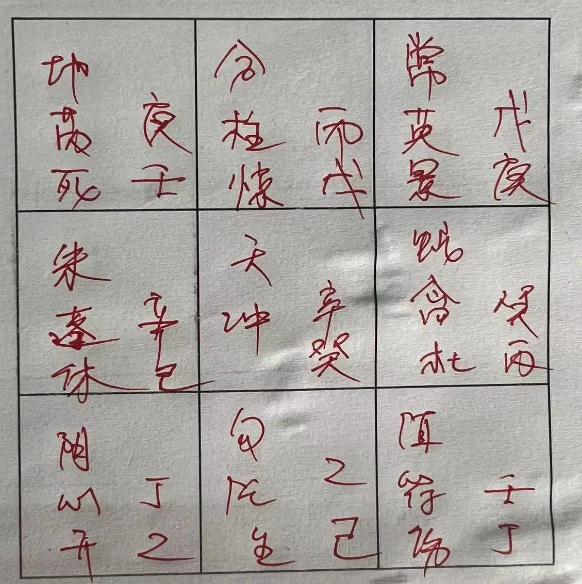 地
芮 庚
死 壬
合
柱 丙
惊 戊
常
英 戊
景 庚
朱
蓬 辛
休
天
冲 辛
癸
蛇
禽 癸
杜 丙
阴
心 丁
开 乙
乙
生 己
值
符 壬
伤 丁